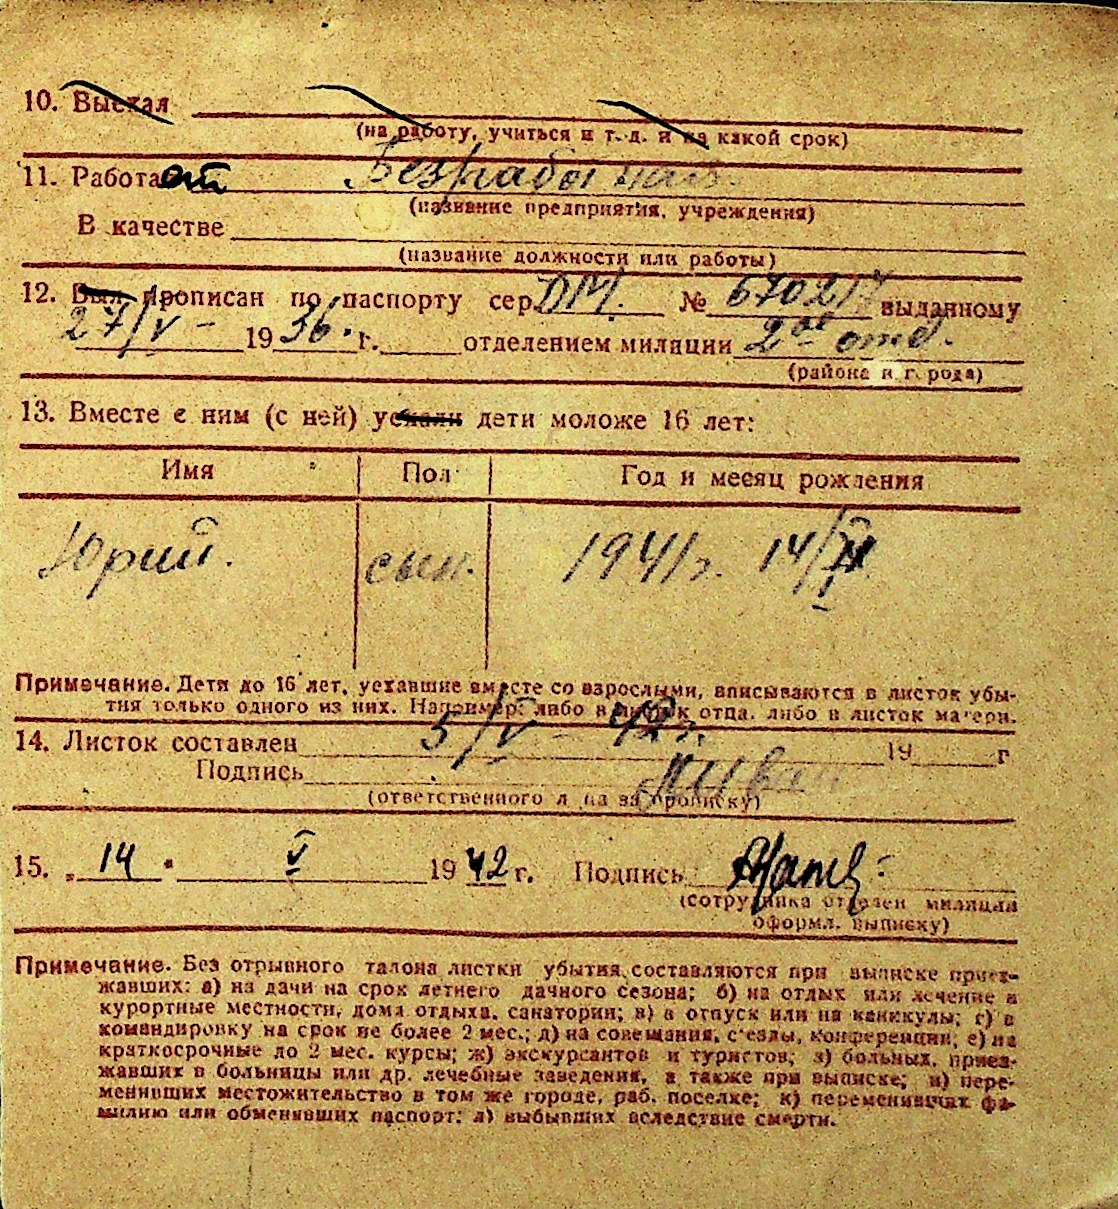 10. Выехал
(на работу, учиться и т. д. и на какой срок)
11. Работает Безработный.
(название предприятия, учреждения)
В качестве
(название должности или работы)
12. Был прописан по паспорту сер. ДМ. № 670217 выданному
27/V - 1936. г. отделением милиции 2ое отд.
(района и города)
13. Вместе с ним (с ней) уехали дети моложе 16 лет:
Имя Пол Год и месяц рождения
Юрий. сын. 1941г. 14/
Примечание. Дети до 16 лет, уехавшие вместе со взрослыми, вписываются в листок убы-
тия только одного из них. Например: либо в листок отца, либо в листок матери.
14. Листок составлен 5/V - 42г. 19 г
Подпись
(ответственного лица за прописку)
15. „ 14 " V 1942 г. Подпись
(сотрудника отделен милиции
оформл. выписку)
Примечание. Без отрывного талона листки убытия составляются при выписке приез-
жавших: а) на дачи на срок летнего дачного сезона; б) на отдых или лечение в
курортные местности, дома отдыха, санатории; в) в отпуск или на каникулы; г) в
командировку на срок не более 2 мес.; д) на совещания, съезды, конференции; е) на
краткосрочные до 2 мес. курсы; ж) экскурсантов и туристов; з) больных, приез-
жавших в больницы или др. лечебные заведения, а также при выписке; и) пере-
менивших местожительство в том же городе, раб. поселке; к) переменивших фа-
милию или обменявших паспорт; л) выбывших вследствие смерти.